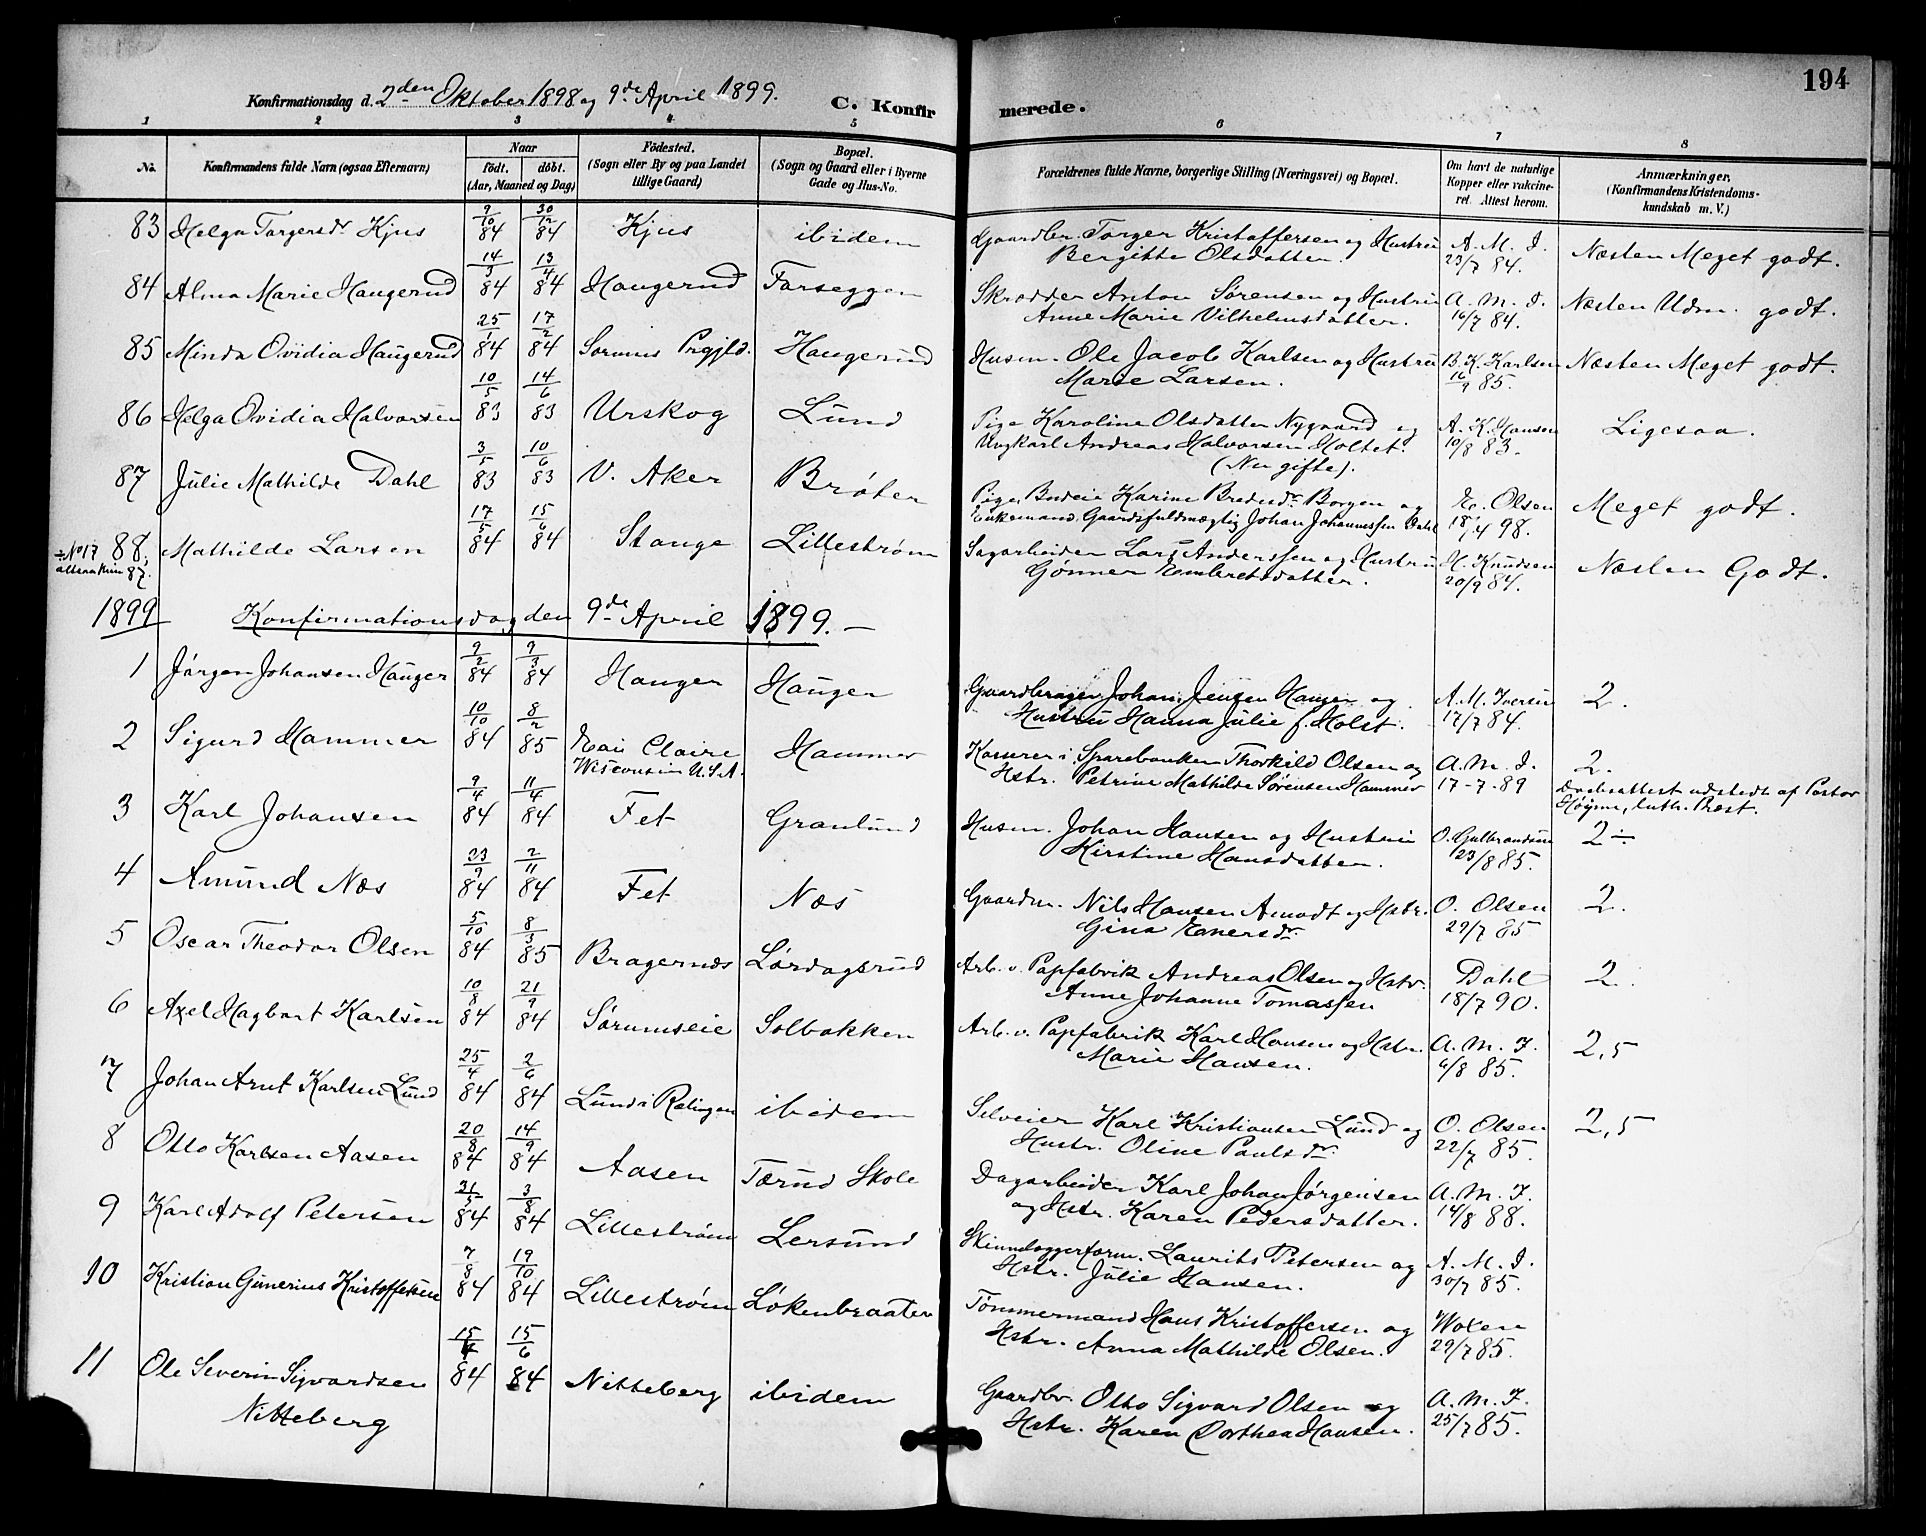 194
Konfirmationsdag d. 2den Oktober 1898 og 9de April 1899.
C. Konfirmerede.
1 2 3 4 5 6 7 8
No. Konfirmandens fulde Navn (ogsaa Efternavn) Naar födt. döbt. (Aar, Maaned og Dag) Födested. (Sogn eller By og paa Landet tillige Gaard) Bopæl. (Sogn og Gaard eller i Byerne Gade og Hus-No. Forældrenes fulde Navne, borgerlige Stilling (Næringsvei) og Bopæl. Om havt de naturlige Kopper eller vakcineret. Attest herom. Anmærkninger. (Konfirmandens Kristendomskundskab m. V.)
83 Helga Torgersdr Kjus 9/10 84 30/12 84 Kjus ibidem Gaardbr. Torger Kristoffersen og Hustru Bergitte Olsdatter. A. M. I. 23/7 84. Næsten Meget godt.
84 Alma Marie Haugerud 14/3 84 13/4 84 Haugerud Farseggen Skrædder Anton Sørensen og Hustru Anne Marie Vilhelmsdatter. A. M. I. 16/7 84. Næsten Udm. godt.
85 Minda Ovidia Haugerud 25/1 84 17/2 84 Sørums Prgjld. Haugerud Husm. Ole Jacob Karlsen og Hustru Marie Larsen. B. K. Karlsen 16/9 85. Næsten Meget godt.
86 Helga Ovidia Halvorsen 10/5 83 14/6 83 Urskog Lund Pige Karoline Olsdatter Nygaard og Ungkarl Andreas Halvorsen Holtet. (Nu gifte). A. K. Hansen 10/8 83. Ligesaa.
87 Julie Mathilde Dahl 3/5 83 10/6 83 V. Aker Brøter Pige Budeie Karine Bredesdr. Borgen og Enkemand Gaardsfuldmægtig Johan Johannessen Dahl E. Olsen 18/4 98. Meget godt.
÷ No 17 altsaa kun 87. 88, Mathilde Larsen 17/5 84 15/6 84 Stange Lillestrøm Sagarbeider Lars Anderssen og Hustru Gønner Embretsdatter. H. Knudsen 20/9 84. Næsten Godt.
1899 Konfirmationsdag den 9de April 1899. —
1 Jørgen Johansen Hauger 9/2 84 9/3 84 Hauger Hauger Gaardbruger Johan Jensen Hauger og Hustru Hanna Julie f. Holst. A. M. Iversen 17/7 84. 2.
2 Sigurd Hammer 10/10 84 8/2 85 Eau Claire Wisconsin U.S.A. Hammer Kasserer i Sparebanken Thorkild Olsen og Hstr. Petrine Mathilde Sørensen Hammer A. M. I. 17-7-89 2. Daabsattest udstedt af Pastor Höyme, luth. Præst.
3 Karl Johansen 9/4 84 11/4 84 Fet Granlund Husm. Johan Hansen og Hustru Kirstine Hansdatter. O. Gulbrandsen 23/8 85. 2÷
4 Amund Næs 23/9 84 2/11 84 Fet Næs Gaardm. Nils Hansen Amodt og Hstr. Gina Enersdr. O. Olsen 29/7 85 2.
5 Oscar Theodor Olsen 5/10 84 8/3 85 Bragernæs Lørdagsrud Arb. v. Papfabrik Andreas Olsen og Hstr. Anne Johanne Tomassen Dahl 18/7 90. 2.
6 Axel Hagbart Karlsen 10/8 84 21/9 84 Sørumseie Solbakken Arb. v. Papfabrik Karl Hansen og Hstr. Marie Hansen. A. M. I. 6/8 85. 2,5
7 Johan Arnt Karlsen Lund 25/4 84 2/6 84 Lund i Rælingen ibidem Selveier Karl Kristiansen Lund og Hustr. Oline Paulsdr. O. Olsen 22/7 85. 2,5
8 Otto Karlsen Aasen 20/8 84 14/9 84 Aasen Tærud Skole Dagarbeider Karl Johan Jørgensen og Hstr. Karen Pedersdatter. A. M. I. 14/8 88.
9 Karl Adolf Petersen 31/5 84 3/8 84 Lillestrøm Lersund Laurits Petersen og Hstr. Julie Hansen. A. M. I. 30/7 85.
10 Kristian Gunerius Kristoffersen 7/8 84 19/10 84 Lillestrøm Løkenbraaten Tømmermand Hans Kristoffersen og Hstr. Anna Mathilde Olsen. Woxen 29/7 85.
11 Ole Severin Sigvardsen Nitteberg 15/4 84 15/6 84 Nitteberg ibidem Gaardbr. Otto Sigvard Olsen og Hstr. Karen Dorthea Hansen. A. M. I. 25/7 85.